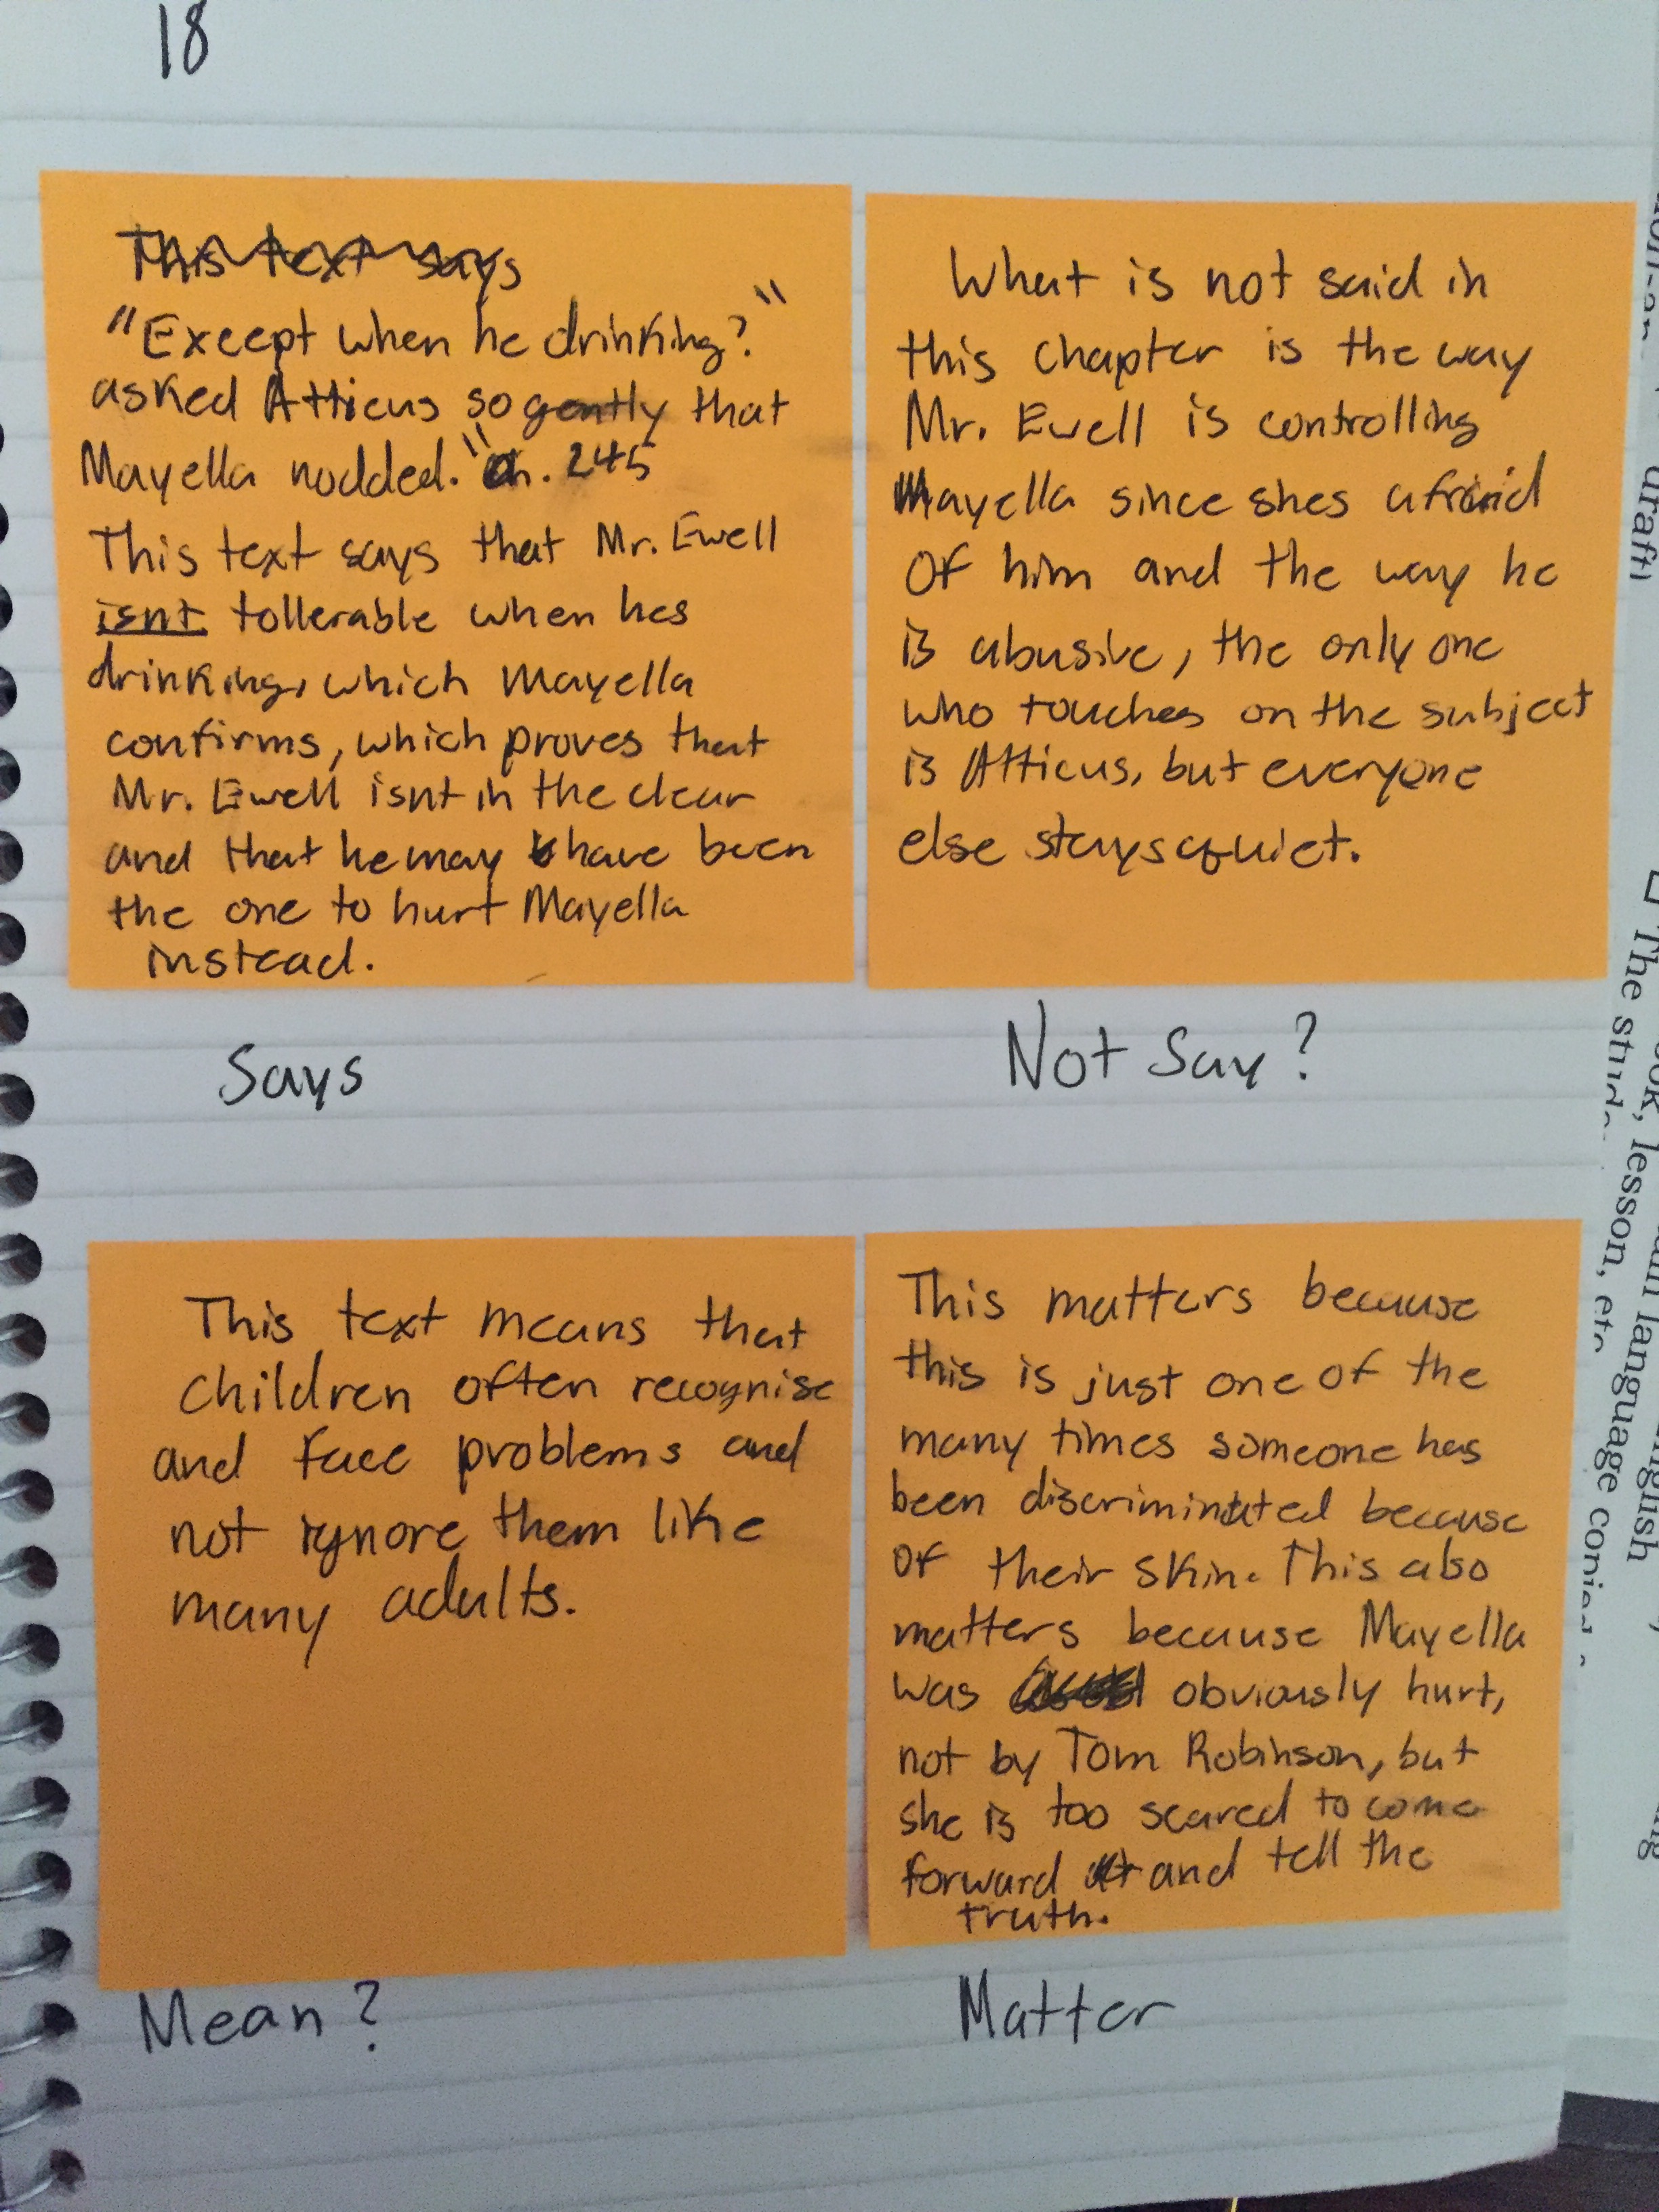 18
This text says
"Except when he drinking?"
asked Atticus so gently that
Mayella nodded." Ch. 245
This text says that Mr. Ewell
isnt tollerable when hes
drinking, which Mayella
confirms, which proves that
Mr. Ewell isnt in the clear
and that he may have been
the one to hurt Mayella
instead.
Says
What is not said in
this chapter is the way
Mr. Ewell is controlling
Mayella since shes afraid
Of him and the way he
is abusive, the only one
who touches on the subject
is Atticus, but everyone
else stays quiet.
Not Say?
This text means that
children often recognise
and face problems and
not ignore them like
many adults.
Mean?
This matters because
this is just one of the
many times someone has
been discriminated because
of their skin. This also
matters because Mayella
was obviously hurt,
not by Tom Robinson, but
she is too scared to come
forward and tell the
truth.
Matter
The
lesson, etc
language
English